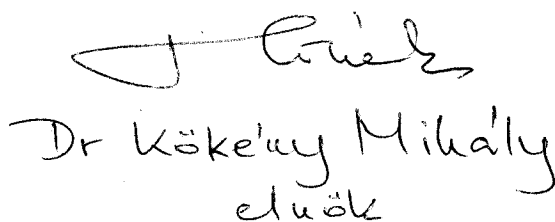 Dr Kökény Mihály
elnök